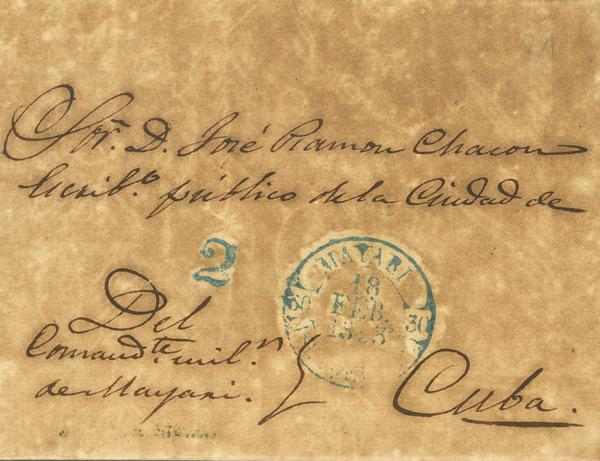 21
Sor. D. José Ramon Chacon
Escrib.o público de la Ciudad de
2
MAYARI
18
FEB.
30
Del
Comand.te mil.n
de Mayari.
Cuba.